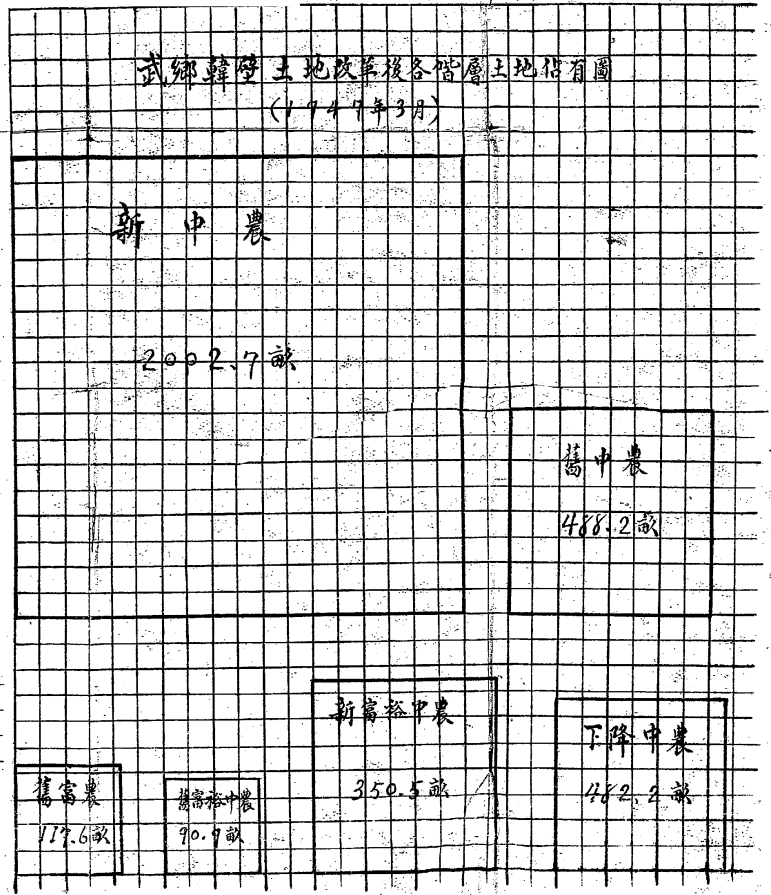 武鄉韓壁土地改革後各階層土地佔有圖
(1947年3月)
新中農
2002.7畝
舊中農
488.2畝
新富裕中農
350.5畝
下降中農
舊富農
舊富裕中農
90.9畝